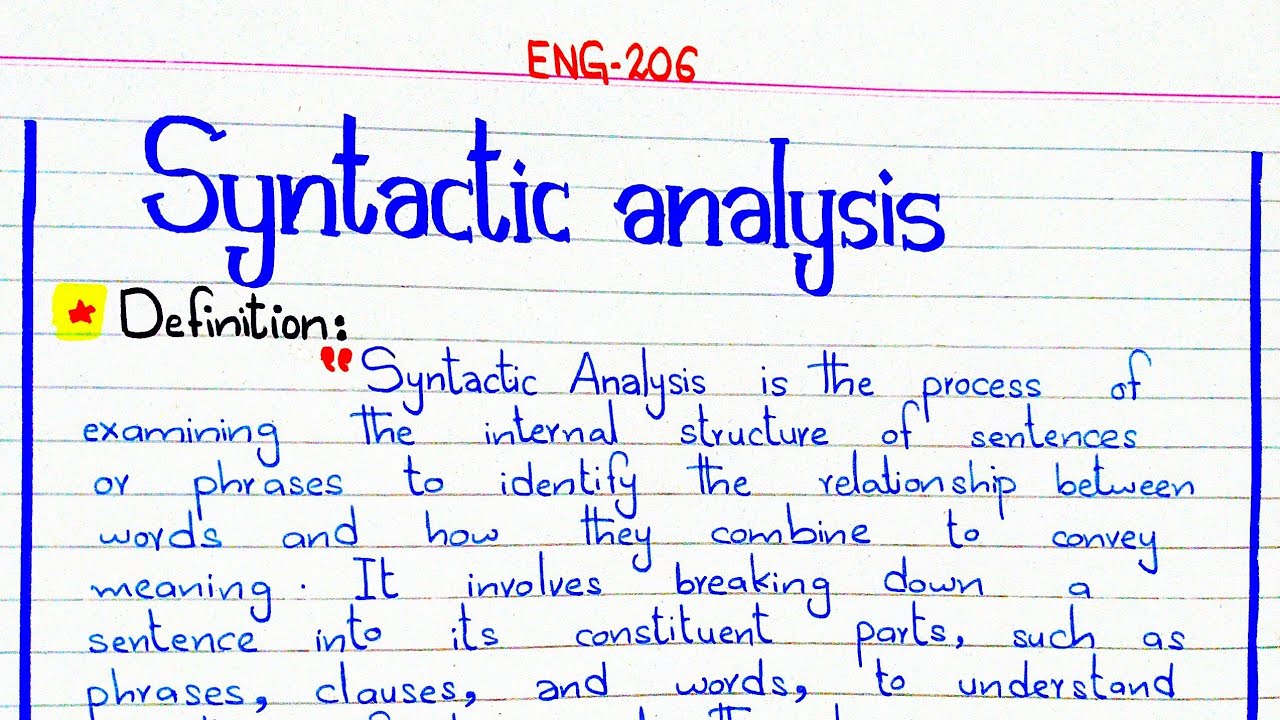 ENG-206
Syntactic analysis
Definition:
"Syntactic Analysis is the process of
examining the internal structure of sentences
or phrases to identify the relationship between
words and how they combine to convey
meaning. It involves breaking down a
sentence into its constituent parts, such as
phrases, clauses, and words, to understand